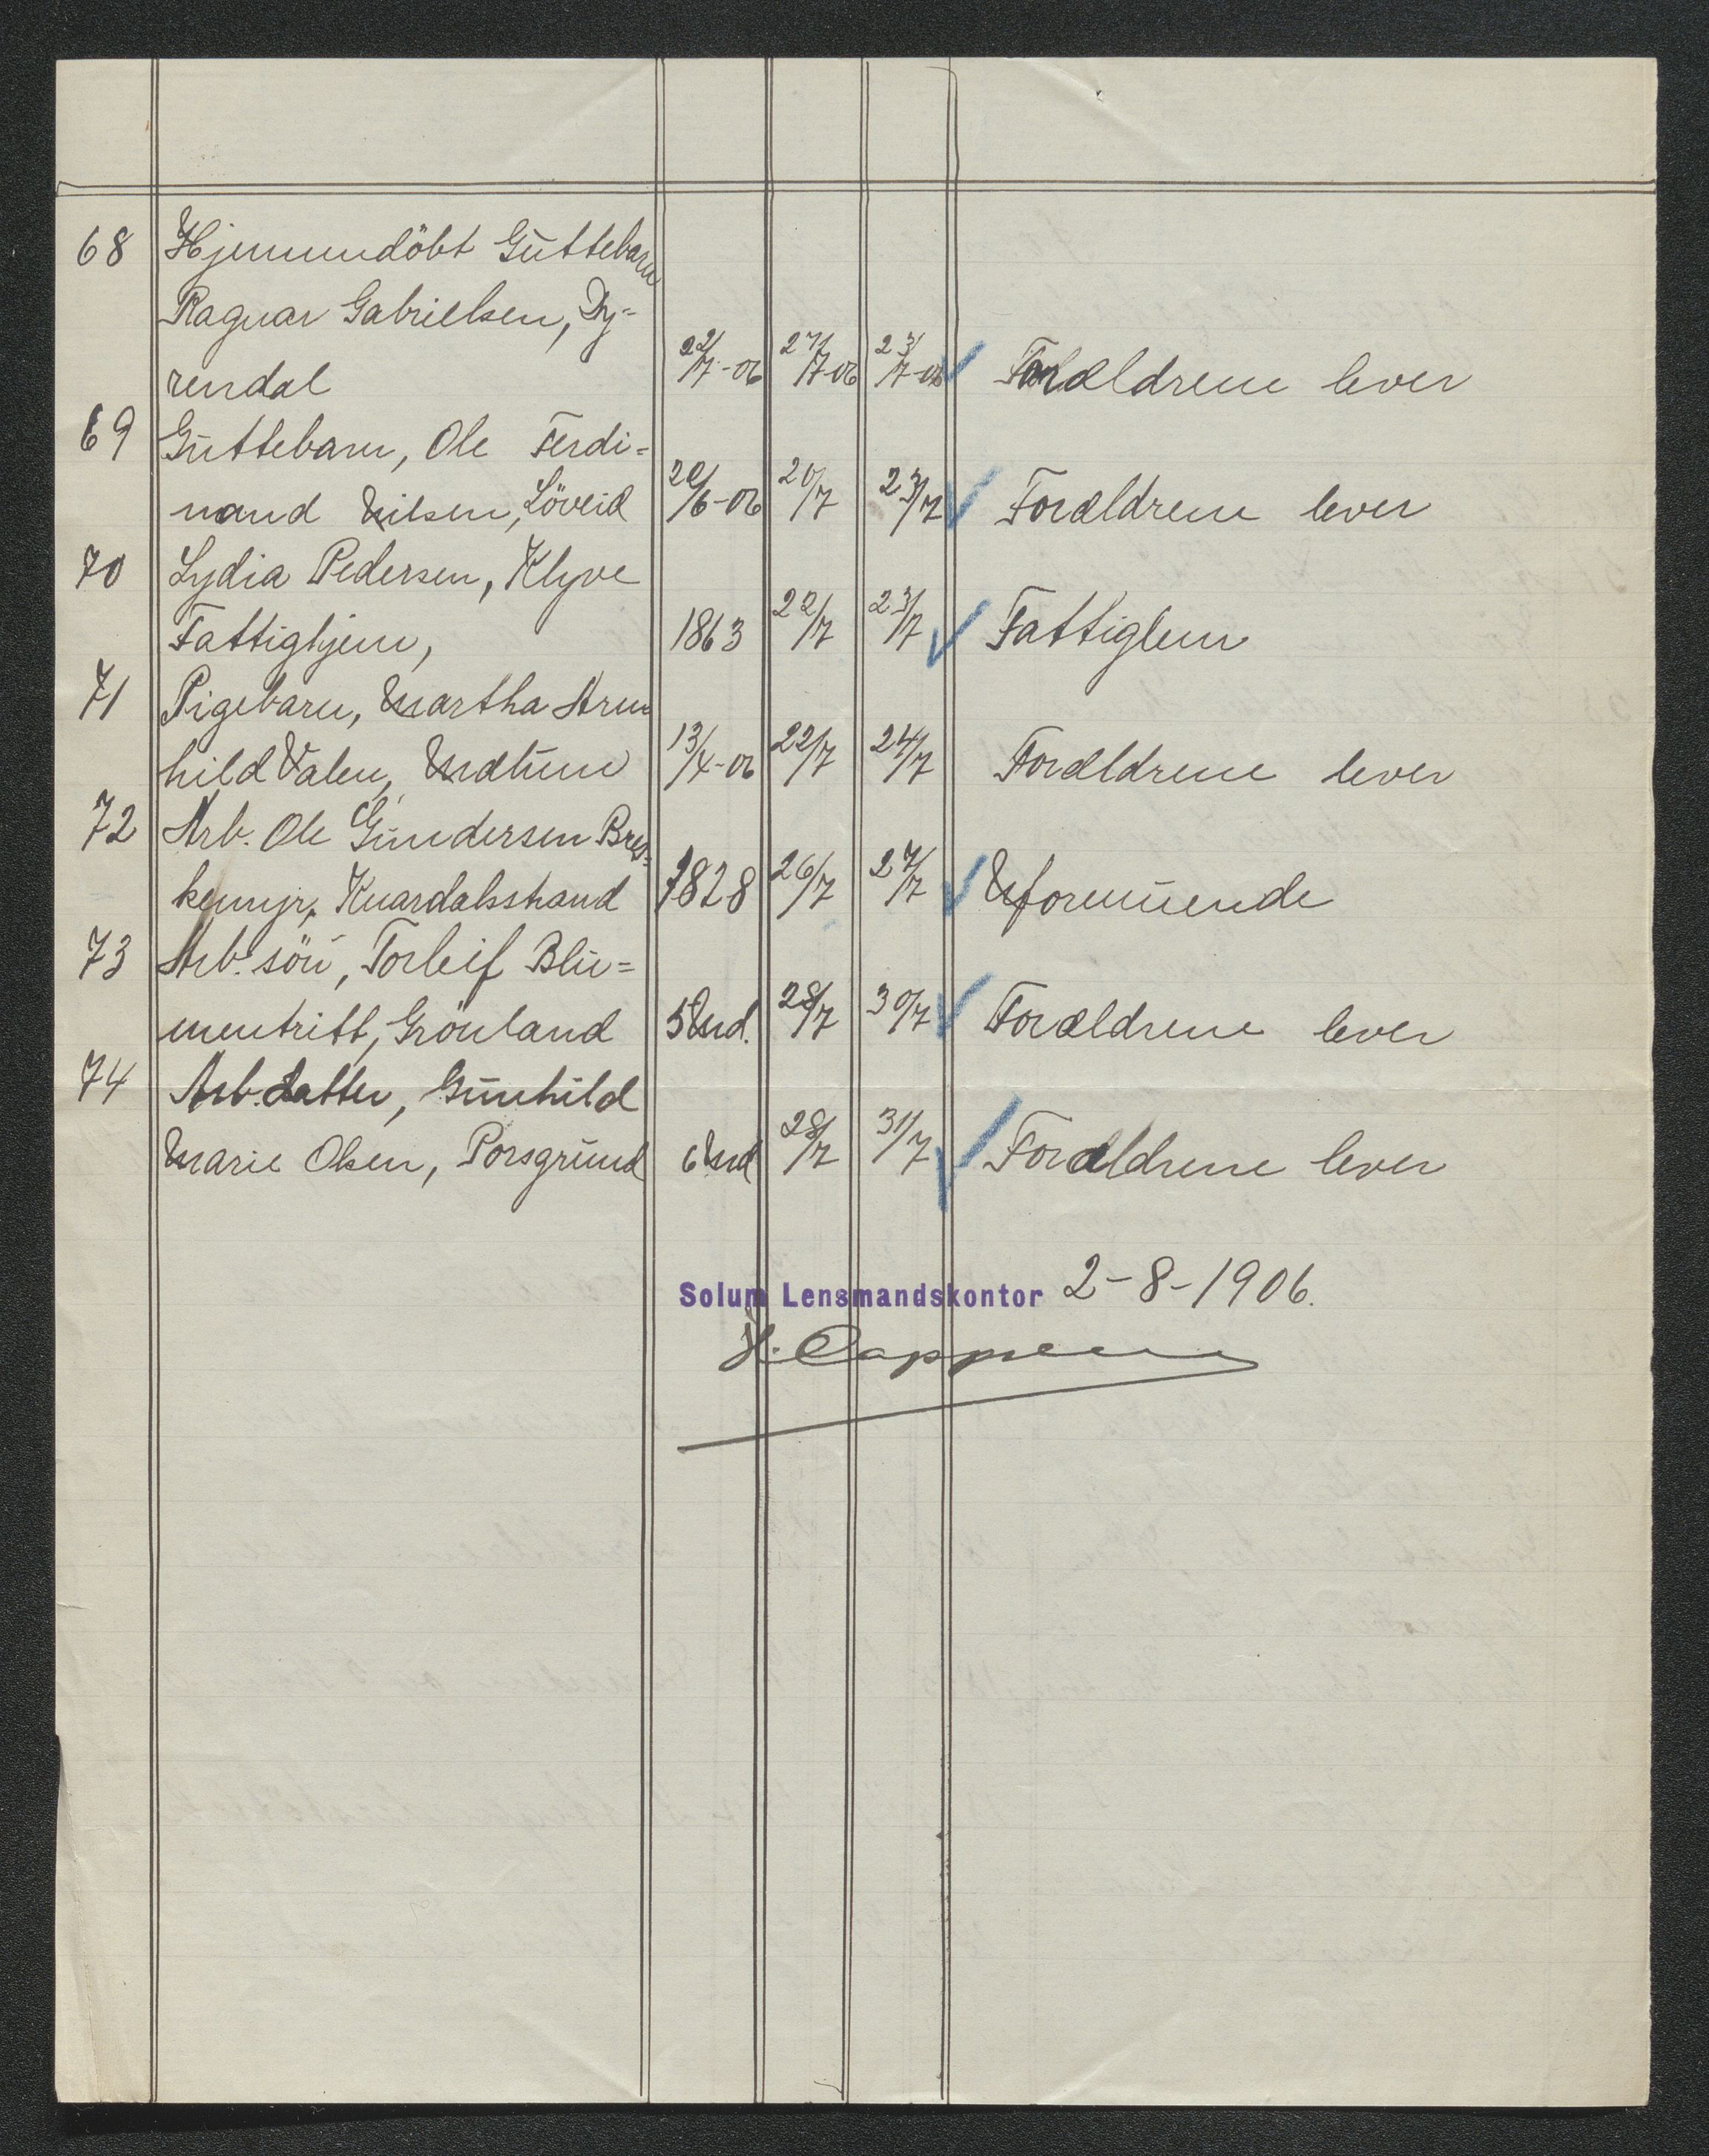 68 Hjemmedöbt Guttebarn
Ragnar Gabrielsen, Dy-
rendal 22/7-06 27/7-06 23/7-06 Forældrene lever
69 Guttebarn, Ole Ferdi-
nand Nilsen, Löveid 20/6-06 20/7 23/7 Forældrene lever
70 Lydia Pedersen, Klyve
Fattighjem, 1863 22/7 23/7 Fattiglem
71 Pigebarn, Martha Arn
hild Valen, Mælum 13/4-06 22/7 24/7 Forældrene lever
72 Arb. Ole Gundersen Bres-
kemyr, Knardalsstrand 1828 26/7 27/7 Uformuende
73 Arb. sön, Torleif Blu-
mentritt, Grönland 5 Md. 28/7 30/7 Forældrene lever
74 Arb. datter, Gunhild
Marie Olsen, Porsgrund 6 Md 28/7 31/7 Forældrene lever
Solum Lensmandskontor 2-8-1906.
H. Cappelen